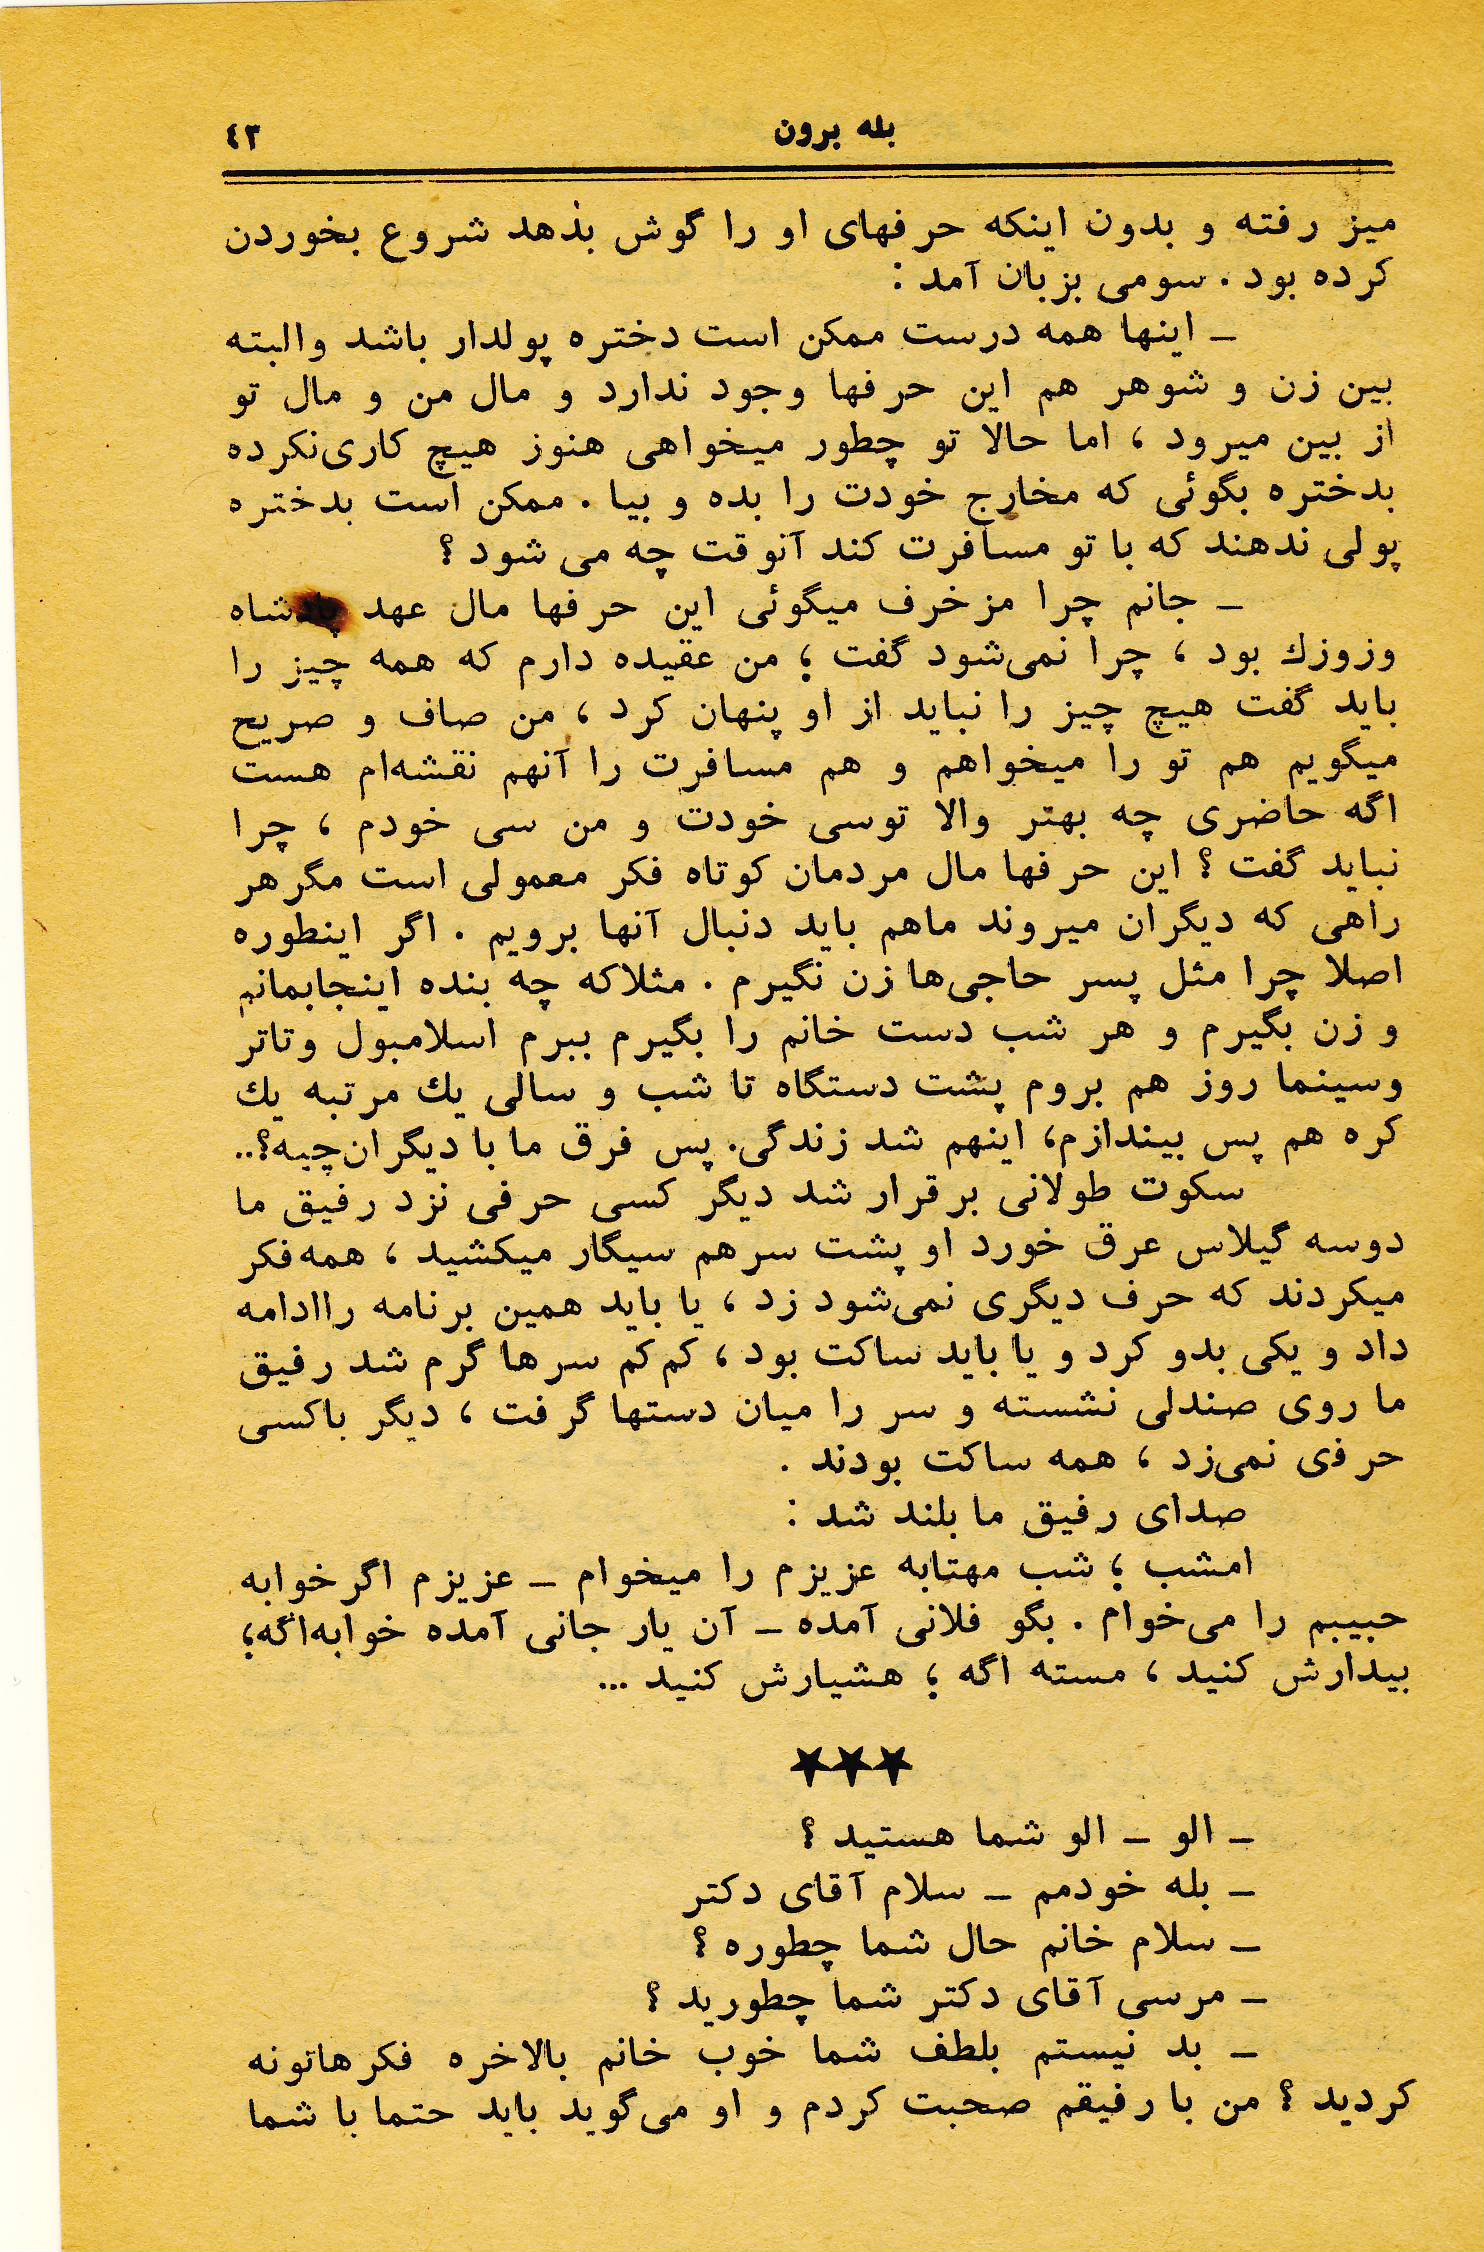 بله برون ٤٣
میز رفته و بدون اینکه حرفهای او را گوش بدهد شروع بخوردن
کرده بود . سومی بزبان آمد :
ـ اینها همه درست ممکن است دختره پولدار باشد والبته
بین زن و شوهر هم این حرفها وجود ندارد و مال من و مال تو
از بین میرود ، اما حالا تو چطور میخواهی هنوز هیچ کاری‌نکرده
بدختره بگوئی که مخارج خودت را بده و بیا . ممکن است بدختره
پولی ندهند که با تو مسافرت کند آنوقت چه می شود ؟
ـ جانم چرا مزخرف میگوئی این حرفها مال عهد پادشاه
وزوزك بود ، چرا نمی‌شود گفت ؛ من عقیده دارم که همه چیز را
باید گفت هیچ چیز را نباید از او پنهان کرد ، من صاف و صریح
میگویم هم تو را میخواهم و هم مسافرت را آنهم نقشه‌ام هست
اگه حاضری چه بهتر والا توسی خودت و من سی خودم ، چرا
نباید گفت ؟ این حرفها مال مردمان کوتاه فکر معمولی است مگر هر
راهی که دیگران میروند ماهم باید دنبال آنها برویم . اگر اینطوره
اصلا چرا مثل پسر حاجی‌ها زن نگیرم . مثلاکه چه بنده اینجابمانم
و زن بگیرم و هر شب دست خانم را بگیرم ببرم اسلامبول وتاتر
وسینما روز هم بروم پشت دستگاه تا شب و سالی يك مرتبه يك
کره هم پس بیندازم، اینهم شد زندگی. پس فرق ما با دیگران‌چیه؟..
سکوت طولانی برقرار شد دیگر کسی حرفی نزد رفیق ما
دوسه گیلاس عرق خورد او پشت سرهم سیگار میکشید ، همه فکر
میکردند که حرف دیگری نمی‌شود زد ، یا باید همین برنامه راادامه
داد و یکی بدو کرد و یا باید ساکت بود ، کم‌کم سرها گرم شد رفیق
ما روی صندلی نشسته و سر را میان دستها گرفت ، دیگر باکسی
حرفی نمی‌زد ، همه ساکت بودند .
صدای رفیق ما بلند شد :
امشب ؛ شب مهتابه عزیزم را میخوام ـ عزیزم اگر خوابه
حبیبم را می‌خوام . بگو فلانی آمده ـ آن یار جانی آمده خوابه‌اگه؛
بیدارش کنید ، مسته اگه ؛ هشیارش کنید ...
★★★
ـ الو ـ الو شما هستید ؟
ـ بله خودمم ـ سلام آقای دکتر
ـ سلام خانم حال شما چطوره ؟
ـ مرسی آقای دکتر شما چطورید ؟
ـ بد نیستم بلطف شما خوب خانم بالاخره فکرهاتونه
کردید ؟ من با رفیقم صحبت کردم و او می‌گوید باید حتما با شما